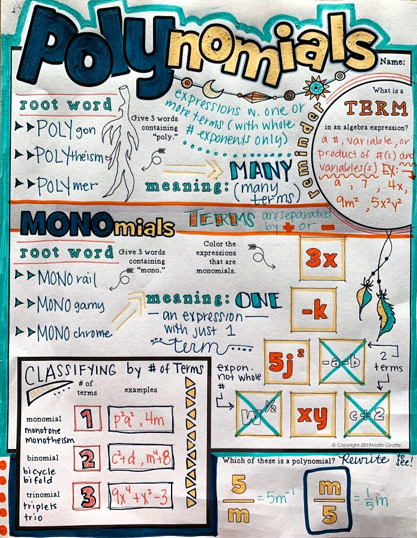 POLYnomials
Name:
root word
Give 3 words
containing
"poly."
POLYgon
POLYtheism
POLYmer
expressions w. one or
more terms (with whole
# exponents only)
meaning: MANY
(many
terms)
Reminder
What is a
TERM
in an algebra expression?
a #, variable, or
product of #(s) and
variables(s) EX:
a, 7, 4x,
9m², 5x²y²
MONOmials
TERMS are separated
by + or -
root word
Give 3 words
containing
"mono."
MONOrail
MONOgamy
MONOchrome
Color the
expressions
that are
monomials.
meaning: ONE
an expression
with just 1
term
3x
-k
5j²
-a-b
2
terms
expon.
not whole
#
w^½
xy
c+2
© Copyright 2019 Math Giraffe
CLASSIFYING by # of Terms
# of
terms
examples
monomial
monotone
monotheism
1
p²q², 4m
binomial
bicycle
bifold
2
c²+d, m⁴+8
trinomial
triplets
trio
3
9x⁴+x²-3
Which of these is a polynomial? Rewrite to
see!
5/m = 5m⁻¹
m/5 = ⅕m